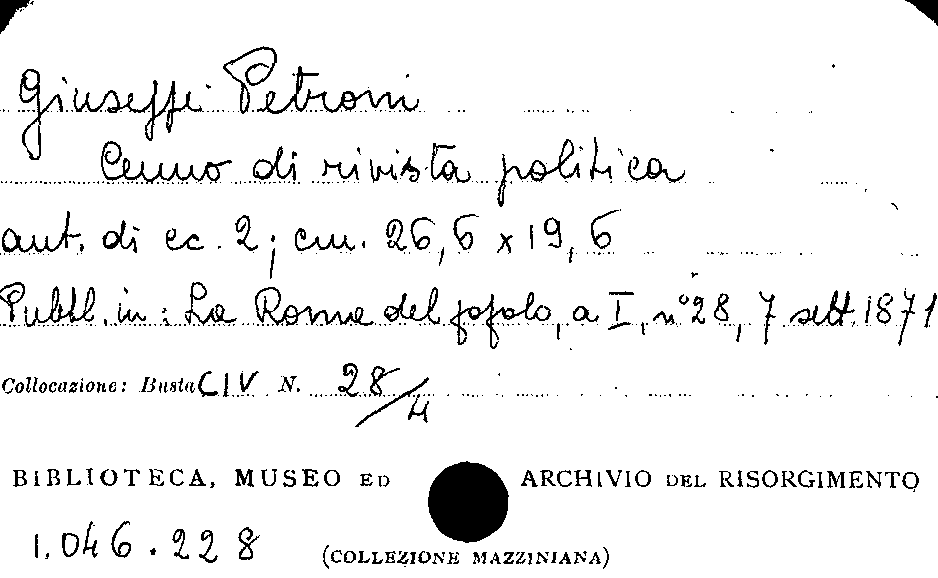 Giuseppe Petroni
Cenno di rivista politica
aut. di cc. 2; cm. 26,6 x 19,6
Pubbl. in: La Roma del popolo, a I, n° 28, 7 sett. 1871
Collocazione: Busta CIV N. 28/4
BIBLIOTECA, MUSEO ED ARCHIVIO DEL RISORGIMENTO
1.046.228 (COLLEZIONE MAZZINIANA)